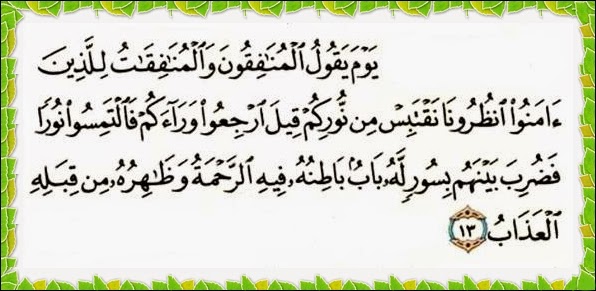 يَوْمَ يَقُولُ ٱلْمُنَٰفِقُونَ وَٱلْمُنَٰفِقَٰتُ لِلَّذِينَ
ءَامَنُوا۟ ٱنظُرُونَا نَقْتَبِسْ مِن نُّورِكُمْ قِيلَ ٱرْجِعُوا۟ وَرَآءَكُمْ فَٱلْتَمِسُوا۟ نُورًا
فَضُرِبَ بَيْنَهُم بِسُورٍ لَّهُۥ بَابٌۢ بَاطِنُهُۥ فِيهِ ٱلرَّحْمَةُ وَظَٰهِرُهُۥ مِن قِبَلِهِ
ٱلْعَذَابُ ١٣